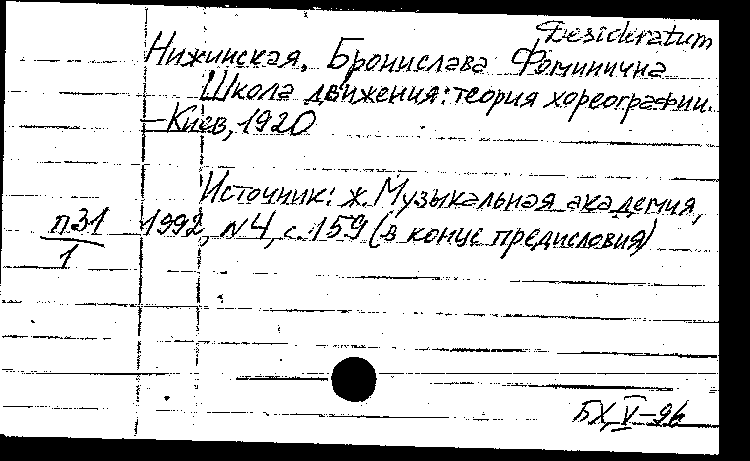 Desideratum
Нижинская, Бронислава Фоминична
Школа движения: теория хореографии.
—Киев, 1920
Источник: ж. Музыкальная академия,
п31 1992, №4, с. 159 (в конце предисловия)
1
БХ, V—96